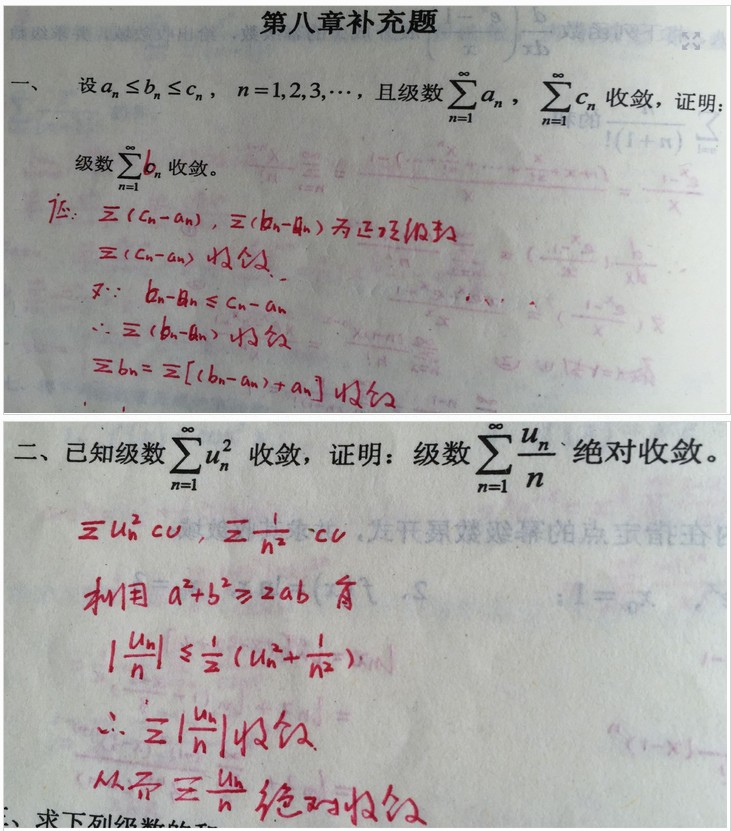 第八章补充题
一、 设 aₙ ≤ bₙ ≤ cₙ， n = 1,2,3,⋯，且级数 ∑_{n=1}^{∞} aₙ， ∑_{n=1}^{∞} cₙ 收敛，证明：
级数 ∑_{n=1}^{∞} bₙ 收敛。
证: Σ(cₙ-aₙ), Σ(bₙ-aₙ) 为正项级数
Σ(cₙ-aₙ) 收敛
又∵ bₙ-aₙ ≤ cₙ-aₙ
∴ Σ(bₙ-aₙ) 收敛
Σbₙ = Σ[(bₙ-aₙ)+aₙ] 收敛
二、已知级数 ∑_{n=1}^{∞} uₙ² 收敛，证明：级数 ∑_{n=1}^{∞} uₙ/n 绝对收敛。
Σuₙ² cv, Σ1/n² cv
利用 a²+b² ≥ 2ab 有
|uₙ/n| ≤ 1/2 (uₙ²+1/n²)
∴ Σ|uₙ/n| 收敛
从而 Σ uₙ/n 绝对收敛
、求下列级数的和